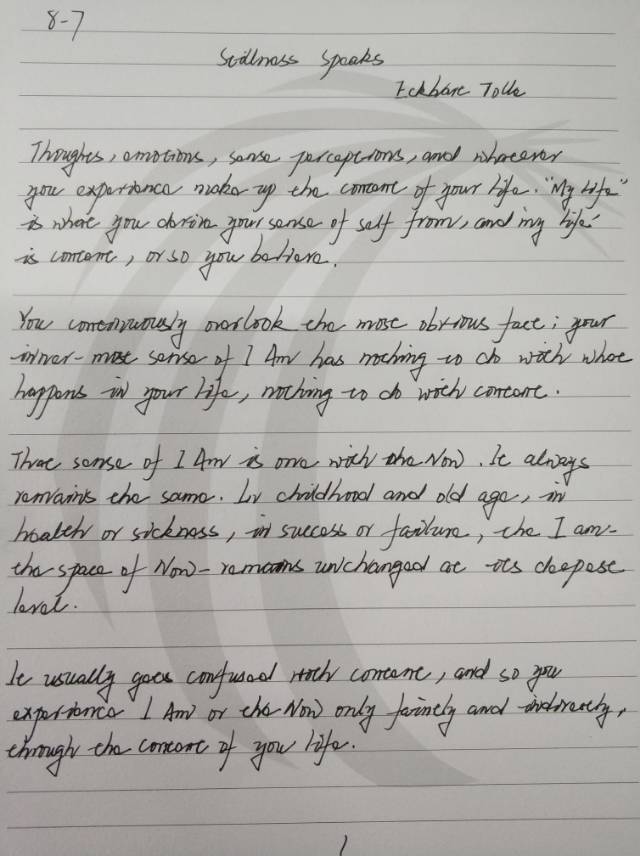 8-7
Stillness Speaks
Eckhart Tolle
Thoughts, emotions, sense perceptions, and whatever
you experience make up the content of your life. "My life"
is what you derive your sense of self from, and my life'
is content, or so you believe.
You continuously overlook the most obvious fact; your
inner-most sense of I Am has nothing to do with what
happens in your life, nothing to do with content.
That sense of I Am is one with the Now. It always
remains the same. In childhood and old age, in
health or sickness, in success or failure, the I am-
the space of Now- remains unchanged at its deepest
level.
It usually gets confused with content, and so you
experience I Am or the Now only faintly and indirectly,
through the content of you life.
1